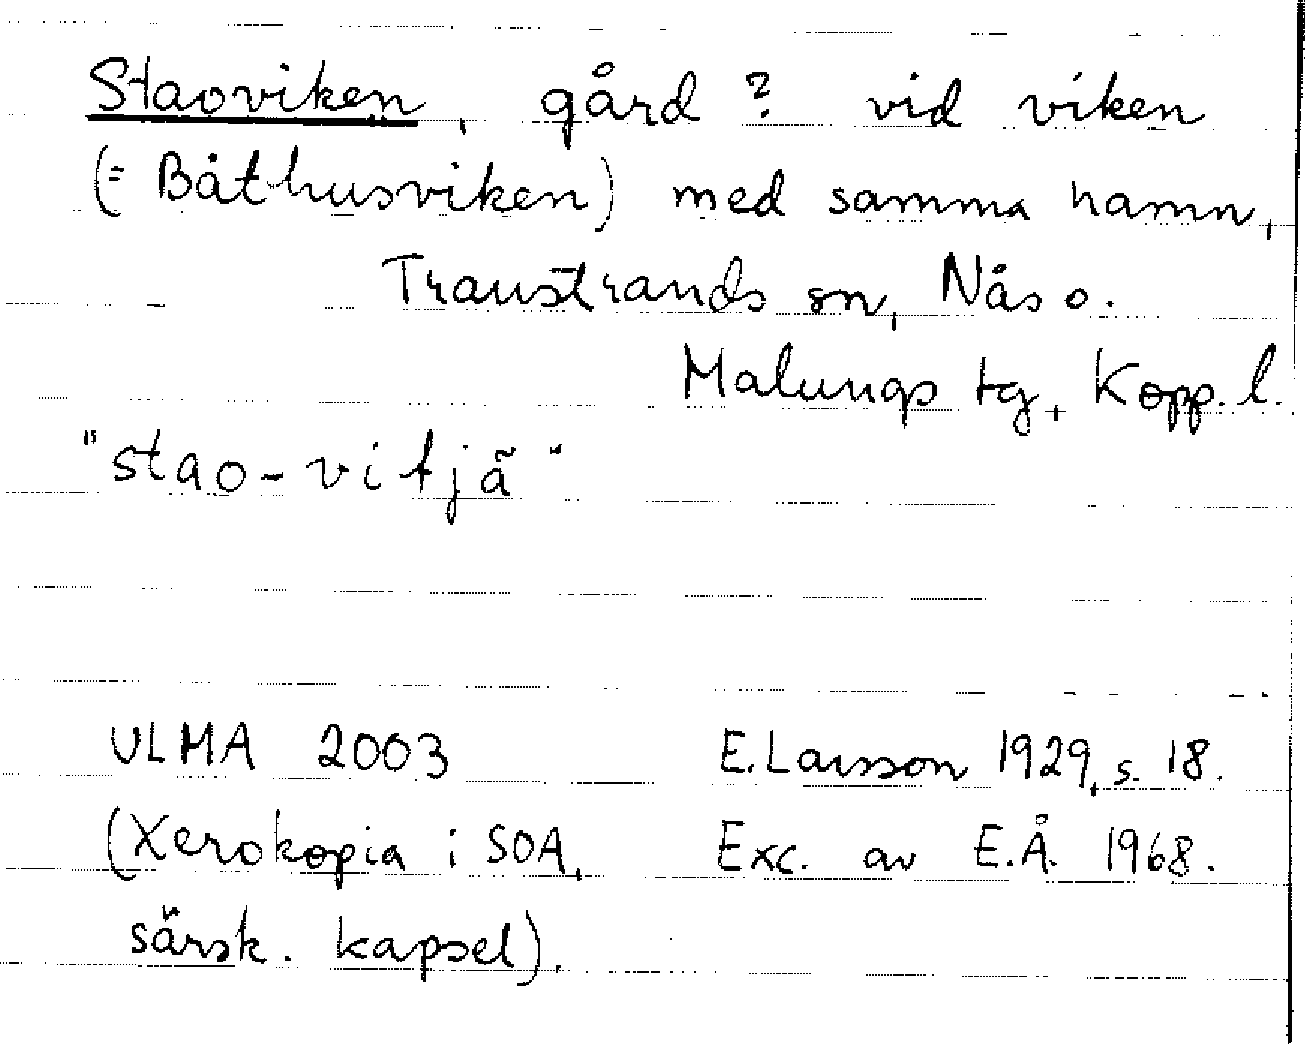 Staoviken, gård ? vid viken
(= Båthusviken) med samma namn,
Transtrands sn, Nås o.
Malungs tg, Kopp. l.
"stao-vitjã"
ULMA 2003 E. Larsson 1929, s. 18.
(Xerokopia i SOA, Exc. av E.Å. 1968.
särsk. kapsel).